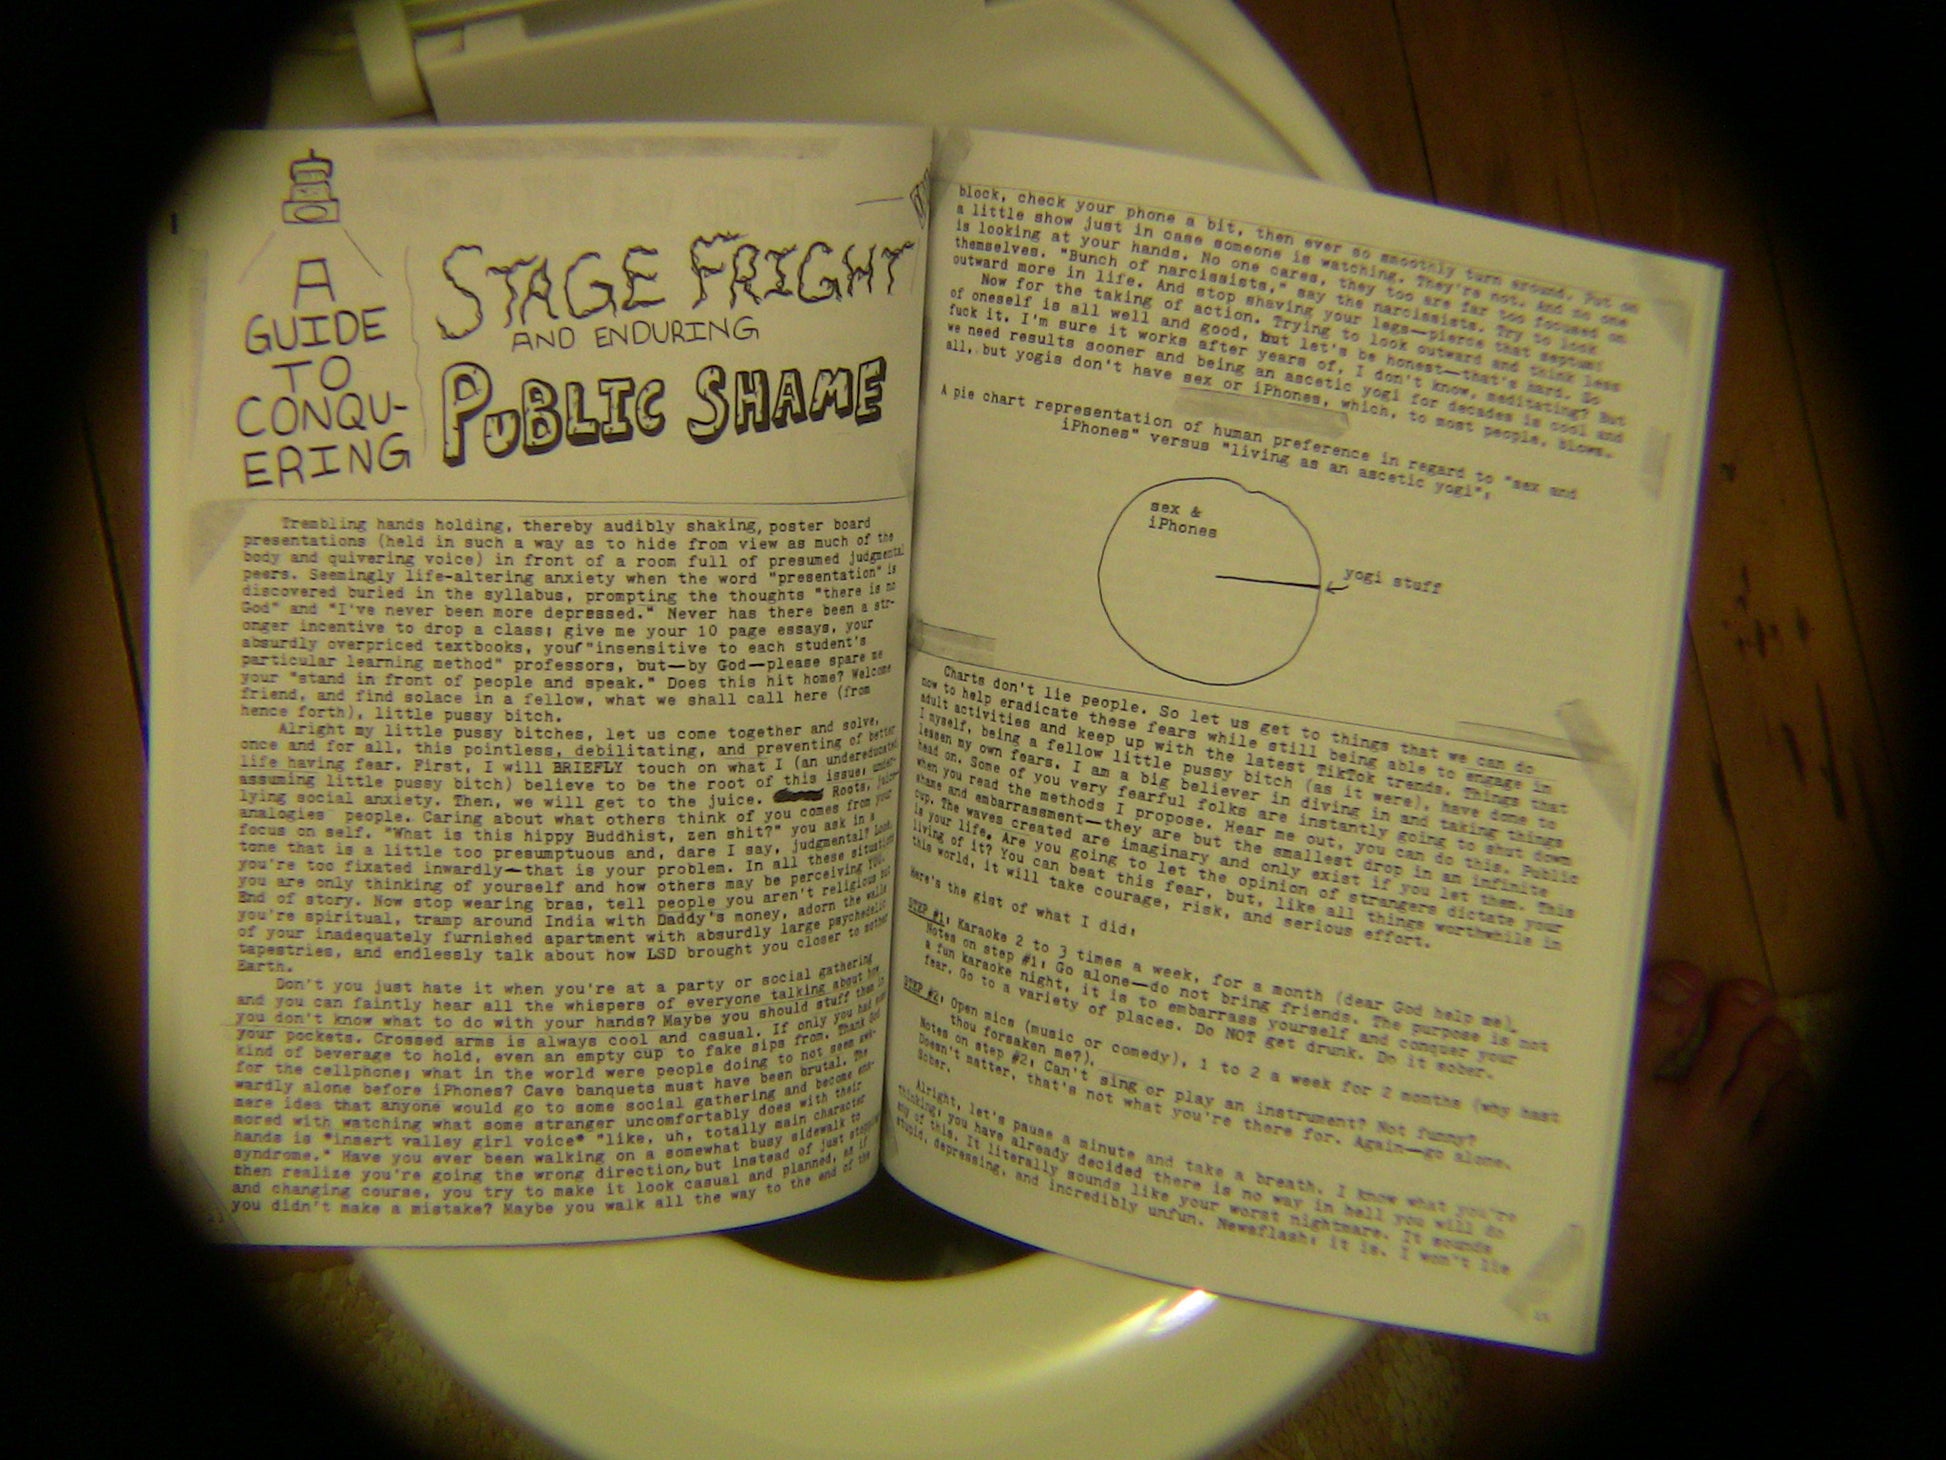 A
GUIDE
TO
CONQU-
ERING
STAGE FRIGHT
AND ENDURING
PUBLIC SHAME
Trembling hands holding, thereby audibly shaking, poster board
presentations (held in such a way as to hide from view as much of the
body and quivering voice) in front of a room full of presumed judgmental
peers. Seemingly life-altering anxiety when the word "presentation" is
discovered buried in the syllabus, prompting the thoughts "there is no
God" and "I've never been more depressed." Never has there been a str-
onger incentive to drop a class; give me your 10 page essays, your
absurdly overpriced textbooks, your "insensitive to each student's
particular learning method" professors, but—by God—please spare me
your "stand in front of people and speak." Does this hit home? Welcome
friend, and find solace in a fellow, what we shall call here (from
hence forth), little pussy bitch.
Alright my little pussy bitches, let us come together and solve,
once and for all, this pointless, debilitating, and preventing of better
life having fear. First, I will BRIEFLY touch on what I (an undereducated
assuming little pussy bitch) believe to be the root of this issue; under-
lying social anxiety. Then, we will get to the juice. Roots, juice—
analogies people. Caring about what others think of you comes from your
focus on self. "What is this hippy Buddhist, zen shit?" you ask in a
tone that is a little too presumptuous and, dare I say, judgmental? Look,
you're too fixated inwardly—that is your problem. In all these situations
you are only thinking of yourself and how others may be perceiving YOU.
End of story. Now stop wearing bras, tell people you aren't religious but
you're spiritual, tramp around India with Daddy's money, adorn the walls
of your inadequately furnished apartment with absurdly large psychedelic
tapestries, and endlessly talk about how LSD brought you closer to mother
Earth.
Don't you just hate it when you're at a party or social gathering
and you can faintly hear all the whispers of everyone talking about how
you don't know what to do with your hands? Maybe you should stuff them in
your pockets. Crossed arms is always cool and casual. If only you had some
kind of beverage to hold, even an empty cup to fake sips from. Thank God
for the cellphone; what in the world were people doing to not seem awk-
wardly alone before iPhones? Cave banquets must have been brutal. The
mere idea that anyone would go to some social gathering and become ena-
mored with watching what some stranger uncomfortably does with their
hands is *insert valley girl voice* "like, uh, totally main character
syndrome." Have you ever been walking on a somewhat busy sidewalk to
then realize you're going the wrong direction, but instead of just stopping
and changing course, you try to make it look casual and planned, as if
you didn't make a mistake? Maybe you walk all the way to the end of the
block, check your phone a bit, then ever so smoothly turn around. Put on
a little show just in case someone is watching. They're not. And no one
is looking at your hands. No one cares, they too are far too focused on
themselves. "Bunch of narcissists," say the narcissists. Try to look
outward more in life. And stop shaving your legs—pierce that septum!
Now for the taking of action. Trying to look outward and think less
of oneself is all well and good, but let's be honest—that's hard. So
fuck it. I'm sure it works after years of, I don't know, meditating? But
we need results sooner and being an ascetic yogi for decades is cool and
all, but yogis don't have sex or iPhones, which, to most people, blows.
A pie chart representation of human preference in regard to "sex and
iPhones" versus "living as an ascetic yogi":
sex &
iPhones
yogi stuff
Charts don't lie people. So let us get to things that we can do
now to help eradicate these fears while still being able to engage in
adult activities and keep up with the latest TikTok trends. Things that
I myself, being a fellow little pussy bitch (as it were), have done to
lessen my own fears. I am a big believer in diving in and taking things
head on. Some of you very fearful folks are instantly going to shut down
when you read the methods I propose. Hear me out, you can do this. Public
shame and embarrassment—they are but the smallest drop in an infinite
cup. The waves created are imaginary and only exist if you let them. This
is your life. Are you going to let the opinion of strangers dictate your
living of it? You can beat this fear, but, like all things worthwhile in
this world, it will take courage, risk, and serious effort.
Here's the gist of what I did:
STEP #1: Karaoke 2 to 3 times a week, for a month (dear God help me).
Notes on step #1: Go alone—do not bring friends. The purpose is not
a fun karaoke night, it is to embarrass yourself and conquer your
fear. Go to a variety of places. Do NOT get drunk. Do it sober.
STEP #2: Open mics (music or comedy), 1 to 2 a week for 2 months (why hast
thou forsaken me?).
Notes on step #2: Can't sing or play an instrument? Not funny?
Doesn't matter, that's not what you're there for. Again—go alone.
Sober.
Alright, let's pause a minute and take a breath. I know what you're
thinking; you have already decided there is no way in hell you will do
any of this. It literally sounds like your worst nightmare. It sounds
stupid, depressing, and incredibly unfun. Newsflash: it is. I won't lie